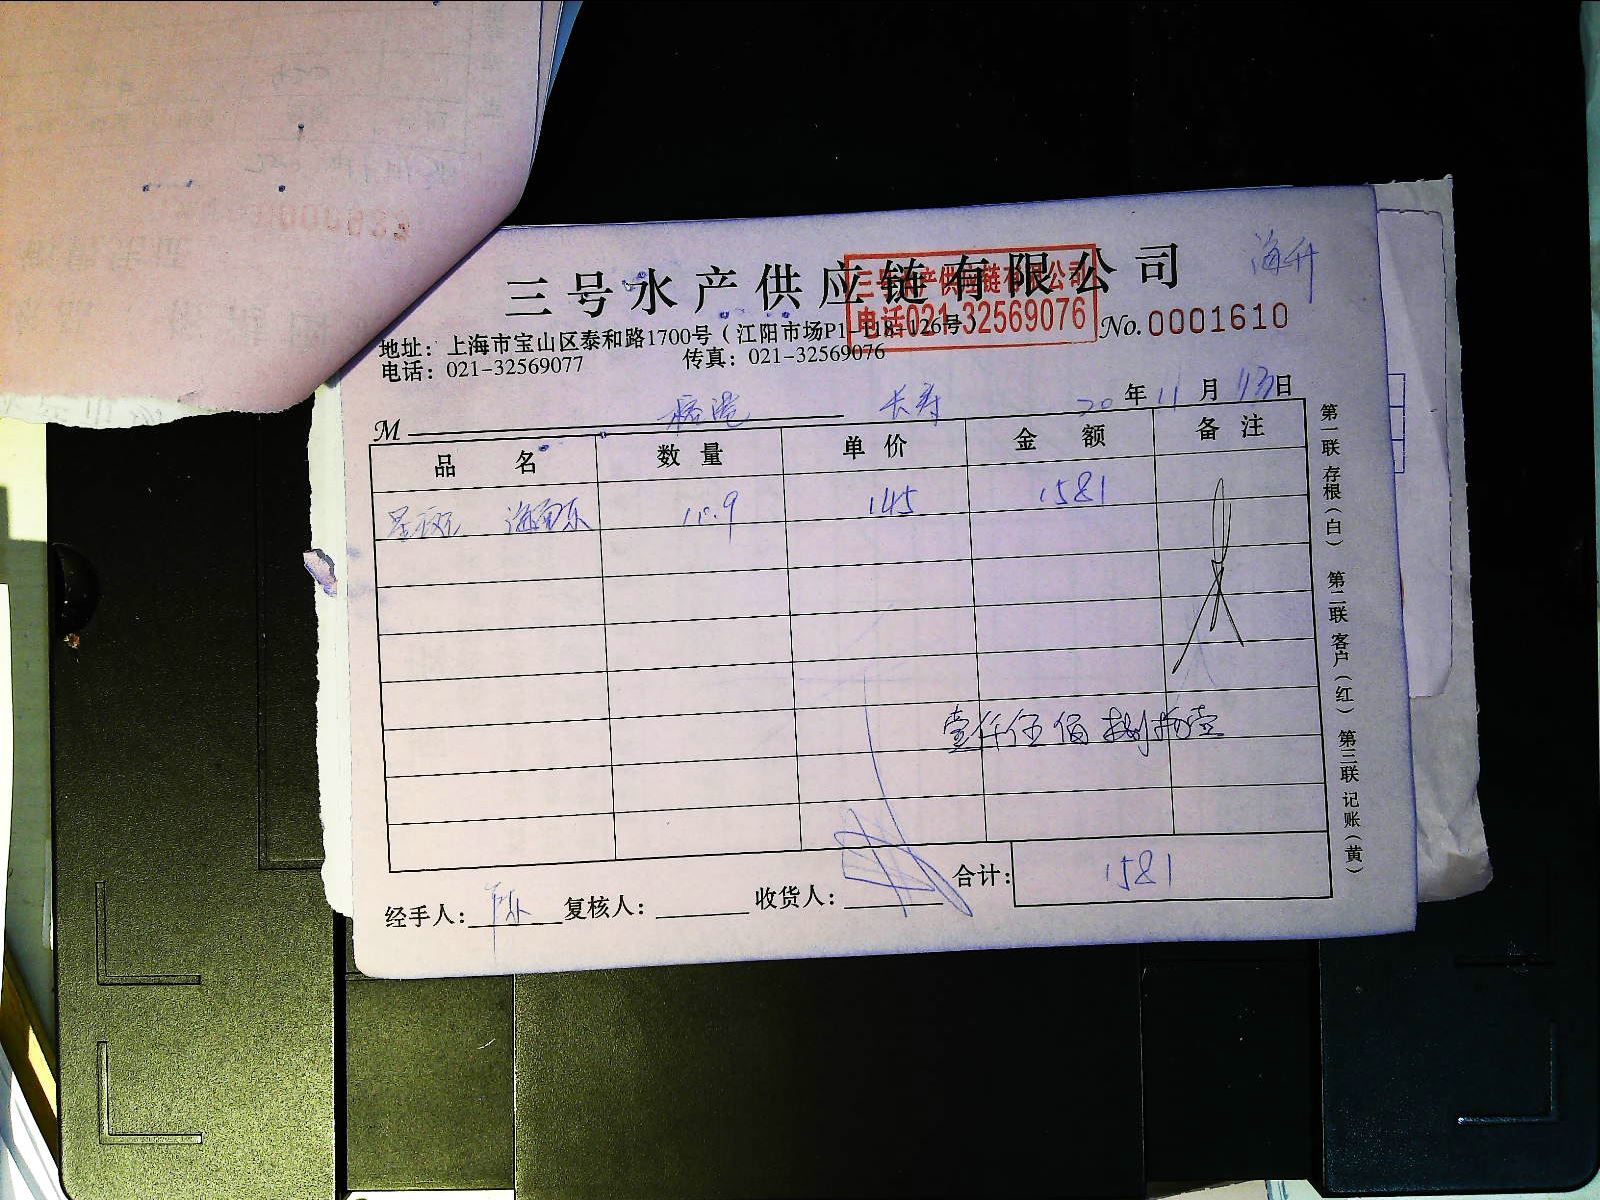 三号水产供应链有限公司
海升
三号水产供应链有限公司
电话021-32569076
No.0001610
地址：上海市宝山区泰和路1700号（江阳市场P1-118-126号）
电话：021-32569077 传真：021-32569076
M 长寿 20年11月13日
品名 数量 单价 金额 备注
星斑 10.9 145 1581
壹仟伍佰捌拾壹
合计：1581
经手人：陈 复核人： 收货人：
第一联存根（白） 第二联客户（红） 第三联记账（黄）